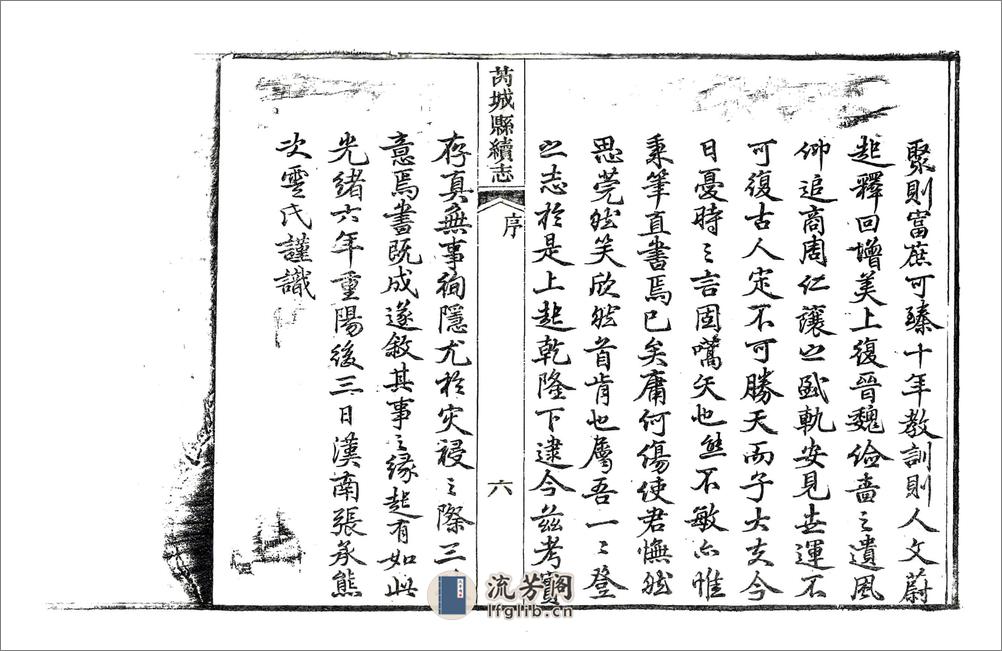 聚則富庶可臻十年教訓則人文蔚
起釋回增美上復晉魏儉嗇之遺風
仰追商周仁讓之盛軌安見世運不
可復古人定不可勝天而子大夫今
日憂時之言固嚆矢也熊不敏亦惟
秉筆直書焉已矣庸何傷使君憮然
思莞然笑欣然首肯也屬吾一一登
之志於是上起乾隆下逮今茲考實
芮城縣續志
序
六
存真無事徇隱尤於灾祲之際三
意焉書既成遂敘其事之緣起有如此
光緒六年重陽後三日漢南張承熊
次雲氏謹識
流芳阁
lfglib.cn